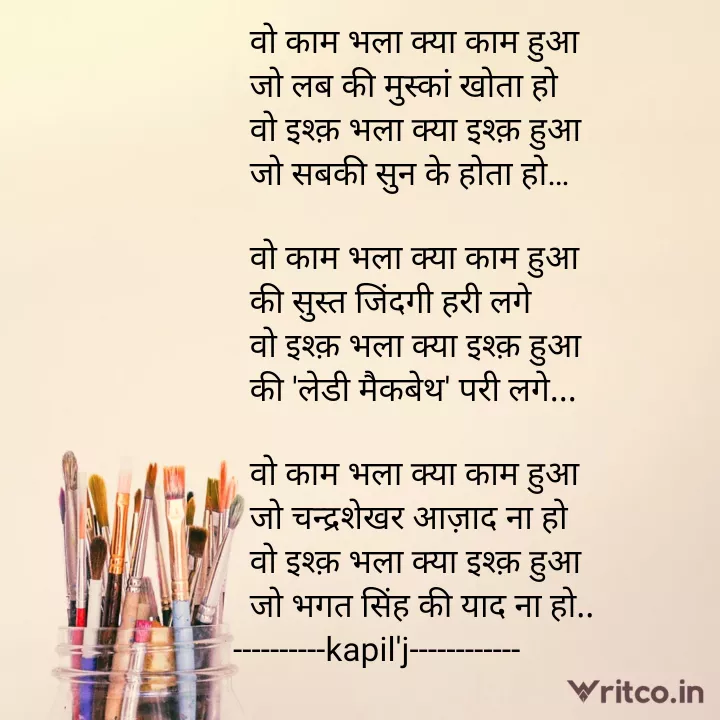 वो काम भला क्या काम हुआ
जो लब की मुस्कां खोता हो
वो इश्क़ भला क्या इश्क़ हुआ
जो सबकी सुन के होता हो...
वो काम भला क्या काम हुआ
की सुस्त जिंदगी हरी लगे
वो इश्क़ भला क्या इश्क़ हुआ
की 'लेडी मैकबेथ' परी लगे...
वो काम भला क्या काम हुआ
जो चन्द्रशेखर आज़ाद ना हो
वो इश्क़ भला क्या इश्क़ हुआ
जो भगत सिंह की याद ना हो..
----------kapil'j------------
Writco.in